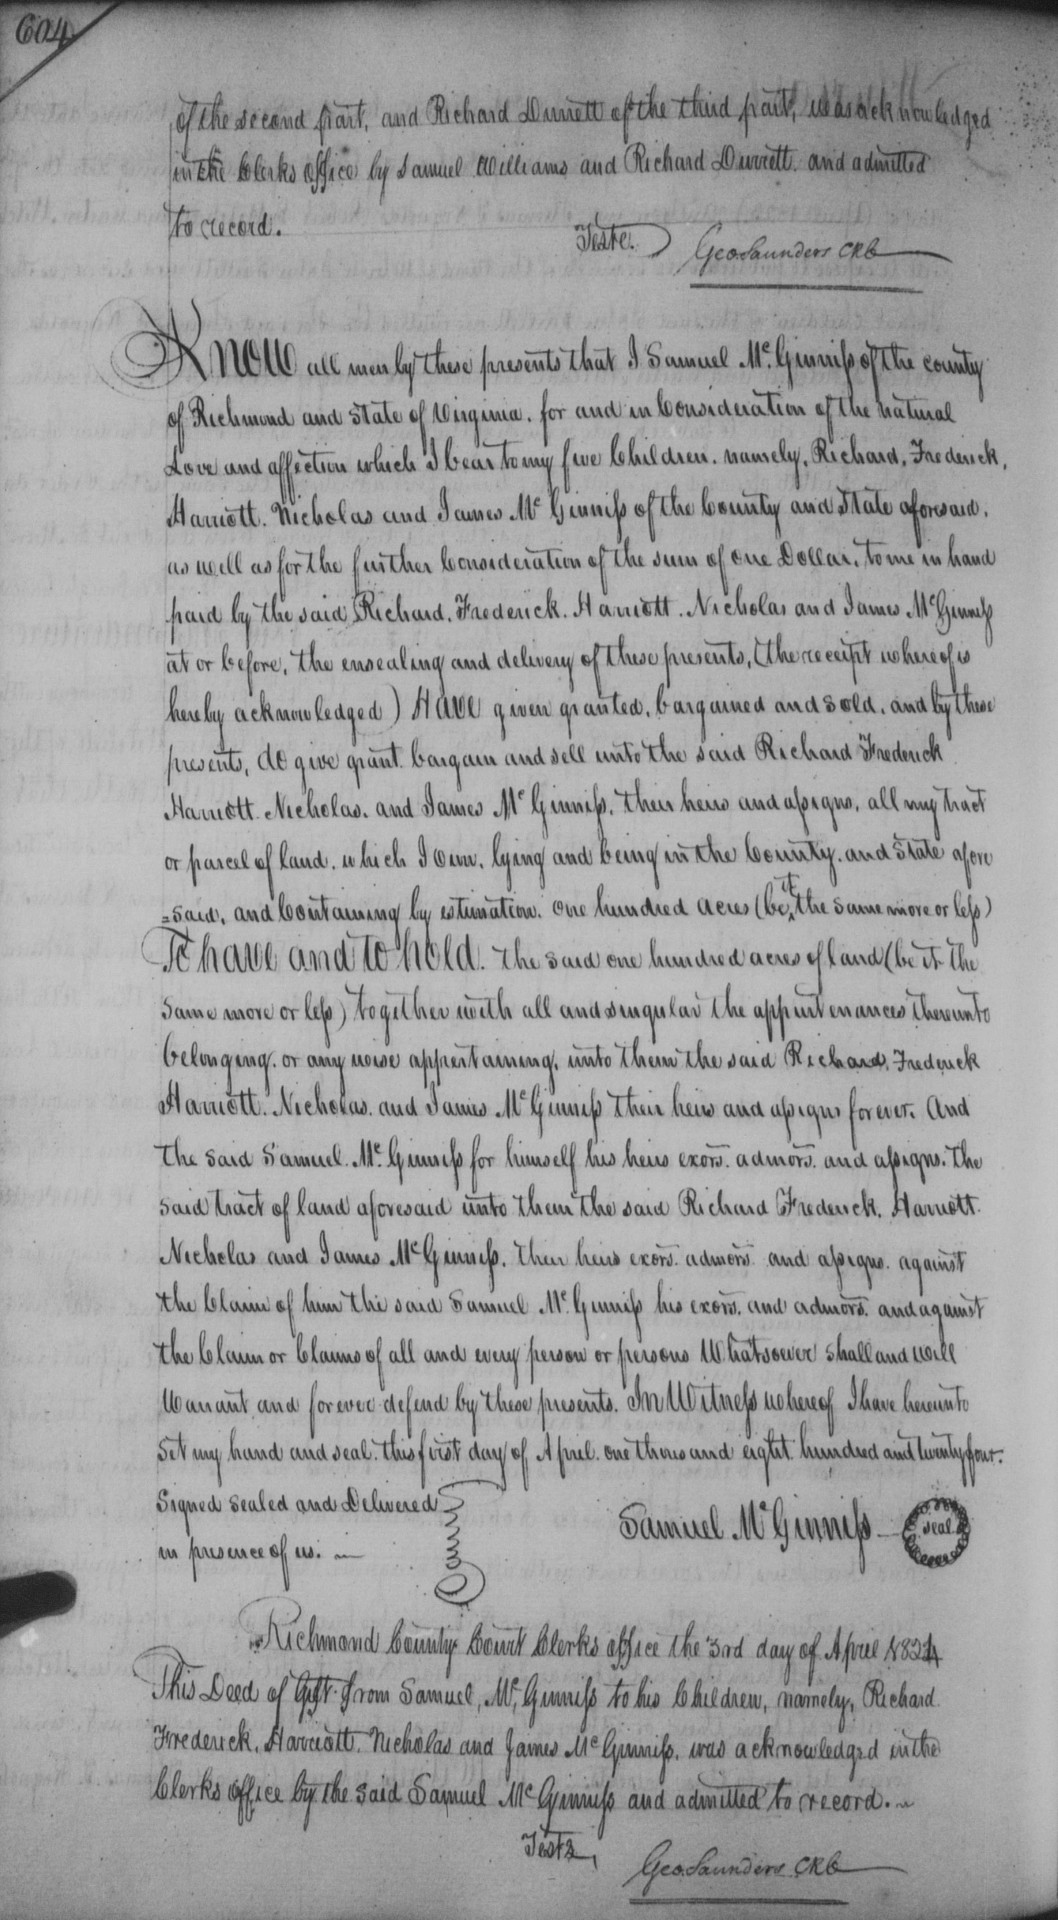 604
of the second part, and Richard Durrett of the third part, was acknowledged
in the Clerks office by Samuel Williams and Richard Durrett. and admitted
to record.
Teste. Geo Saunders CRC
Know all men by these presents that I Samuel Mc. Ginniss of the county
of Richmond and State of Virginia. for and in Consideration of the natural
Love and affection which I bear to my five Children. namely, Richard, Frederick,
Harriott. Nicholas and James Mc Ginniss of the County and State aforesaid.
as well as for the further Consideration of the sum of one Dollar. to me in hand
paid by the said Richard, Frederick. Harriott. Nicholas and James McGinniss
at or before, the ensealing and delivery of these presents, (the receipt whereof is
hereby acknowledged) Have given granted, bargained and sold. and by these
presents, do give grant bargain and sell unto the said Richard Frederick
Harriott. Nicholas. and James Mc Ginniss, their heirs and assigns, all my tract
or parcel of land. which I own, lying and being in the County. and State afore
=said, and Containing by estimation. one hundred acres (be it the same more or less)
To have and to hold. the said one hundred acres of land (be it the
same more or less) together with all and singular the appurtenances thereunto
belonging. or any wise appertaining, unto them the said Richard, Frederick
Harriott. Nicholas. and James Mc Ginniss their heirs and assigns forever. And
the said Samuel. Mc. Ginniss for himself his heirs exors. admors. and assigns. the
said tract of land aforesaid unto them the said Richard Frederick. Harriott.
Nicholas and James McGinniss, their heirs exors. admors. and assigns. against
the Claim of him the said Samuel Mc. Ginniss his exors. and admors. and against
the Claim or Claims of all and every person or persons Whatsoever shall and will
Warrant and forever defend by these presents. In Witness whereof I have hereunto
set my hand and seal. this first day of April. one thousand eight hundred and twenty four.
Signed Sealed and Delivered
in presence of us.
Samuel Mc Ginniss seal
Richmond County Court Clerks office the 3rd day of April 1824
This Deed of Gift. from Samuel, Mc, Ginniss to his Children, namely, Richard
Frederick, Harriott. Nicholas and James Mc Ginniss, was acknowledged in the
Clerks office by the said Samuel Mc Ginniss and admitted to record.
Teste, Geo. Saunders CRC